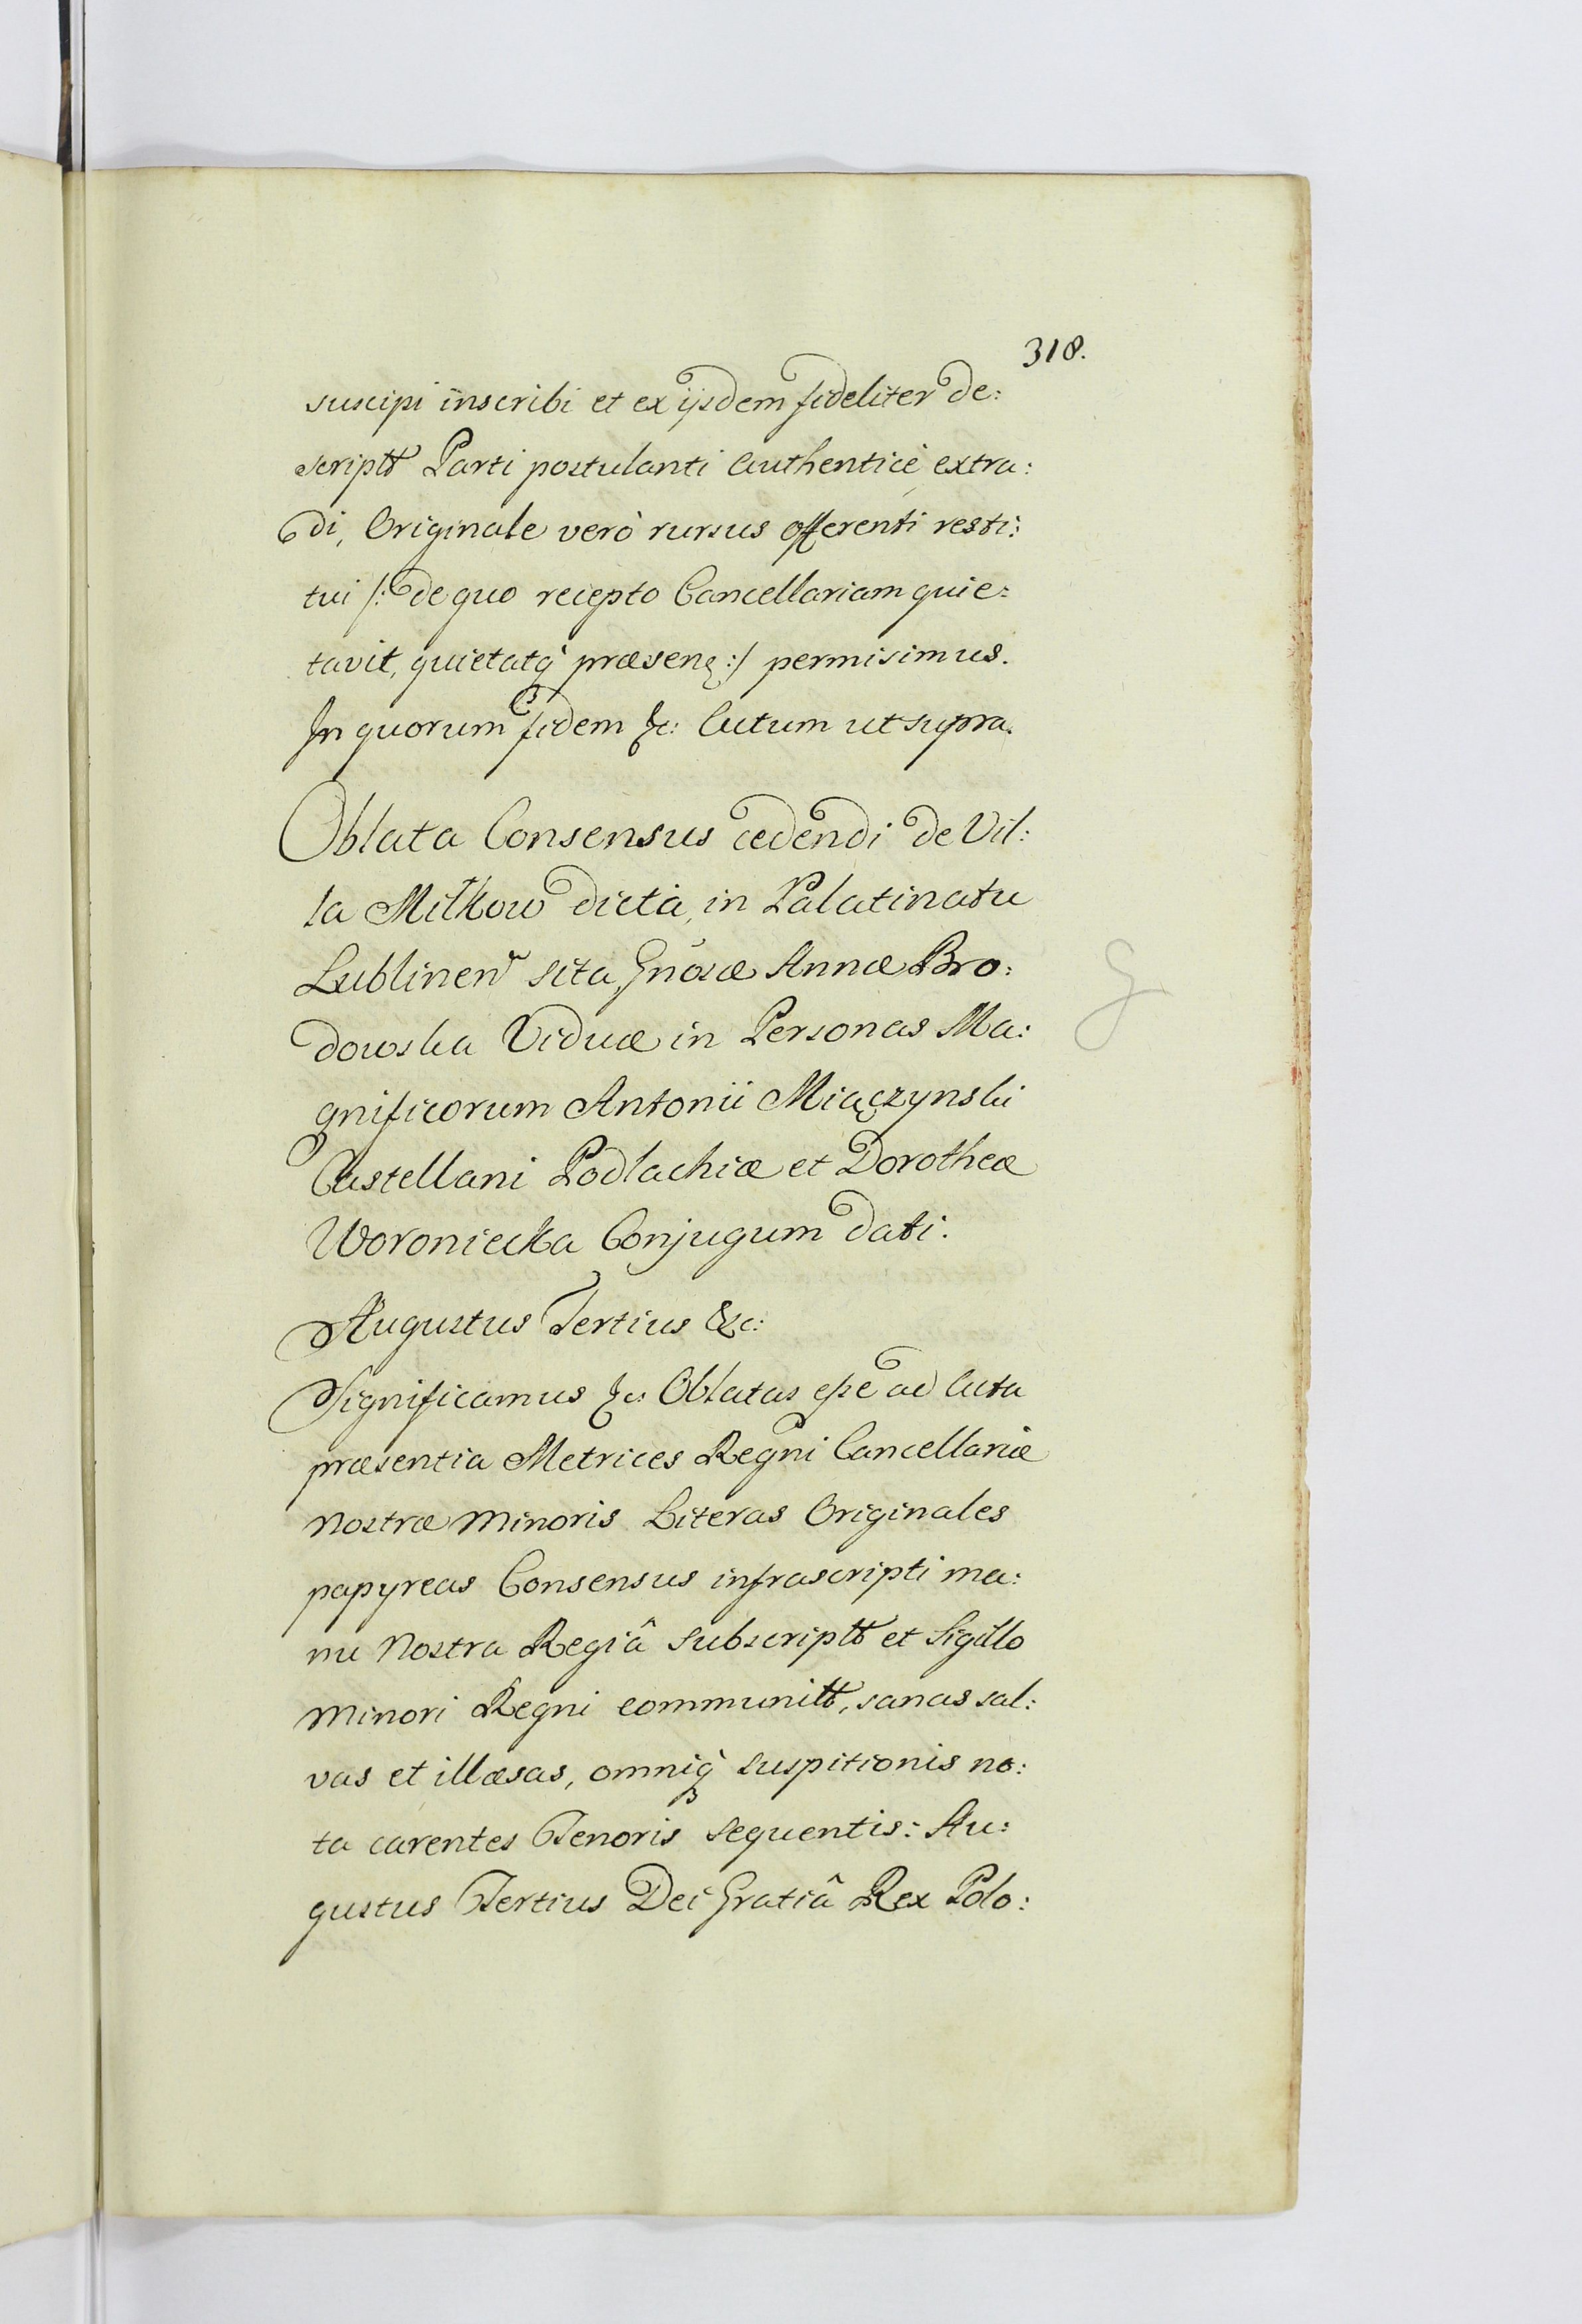 318.
suscipi inscribi et ex ijsdem fideliter de:
scriptt Parti postulanti authenticè extra:
di, Originale verò rursus offerenti resti:
tui /: de quo recepto Cancellariam quie:
tavit, quietatq́ præsenę :/ permisimus.
In quorum fidem &c: Actum ut supra.
Oblata Consensus cedendi de Vil:
la Miłkow dicta, in Palatinatu
Lublinen sita, Gnosæ Annæ Bro:
dowska Viduæ in Personas Ma:
gnificorum Antonii Miączynski
Castellani Podlachiæ et Dorotheæ
Woroniecka Conjugum dati.
Augustus Tertius &c:
Significamus &c: Oblatas esse ad Acta
præsentia Metrices Regni Cancellariæ
Nostræ Minoris Literas Originales
papyreas Consensus infrascripti ma:
nu Nostra Regiâ subscriptt et Sigillo
Minori Regni communitt, sanas sal:
vas et illæsas, omniq́ suspitionis no:
ta carentes Tenoris sequentis: Au:
gustus Tertius Dei Gratiâ Rex Polo: